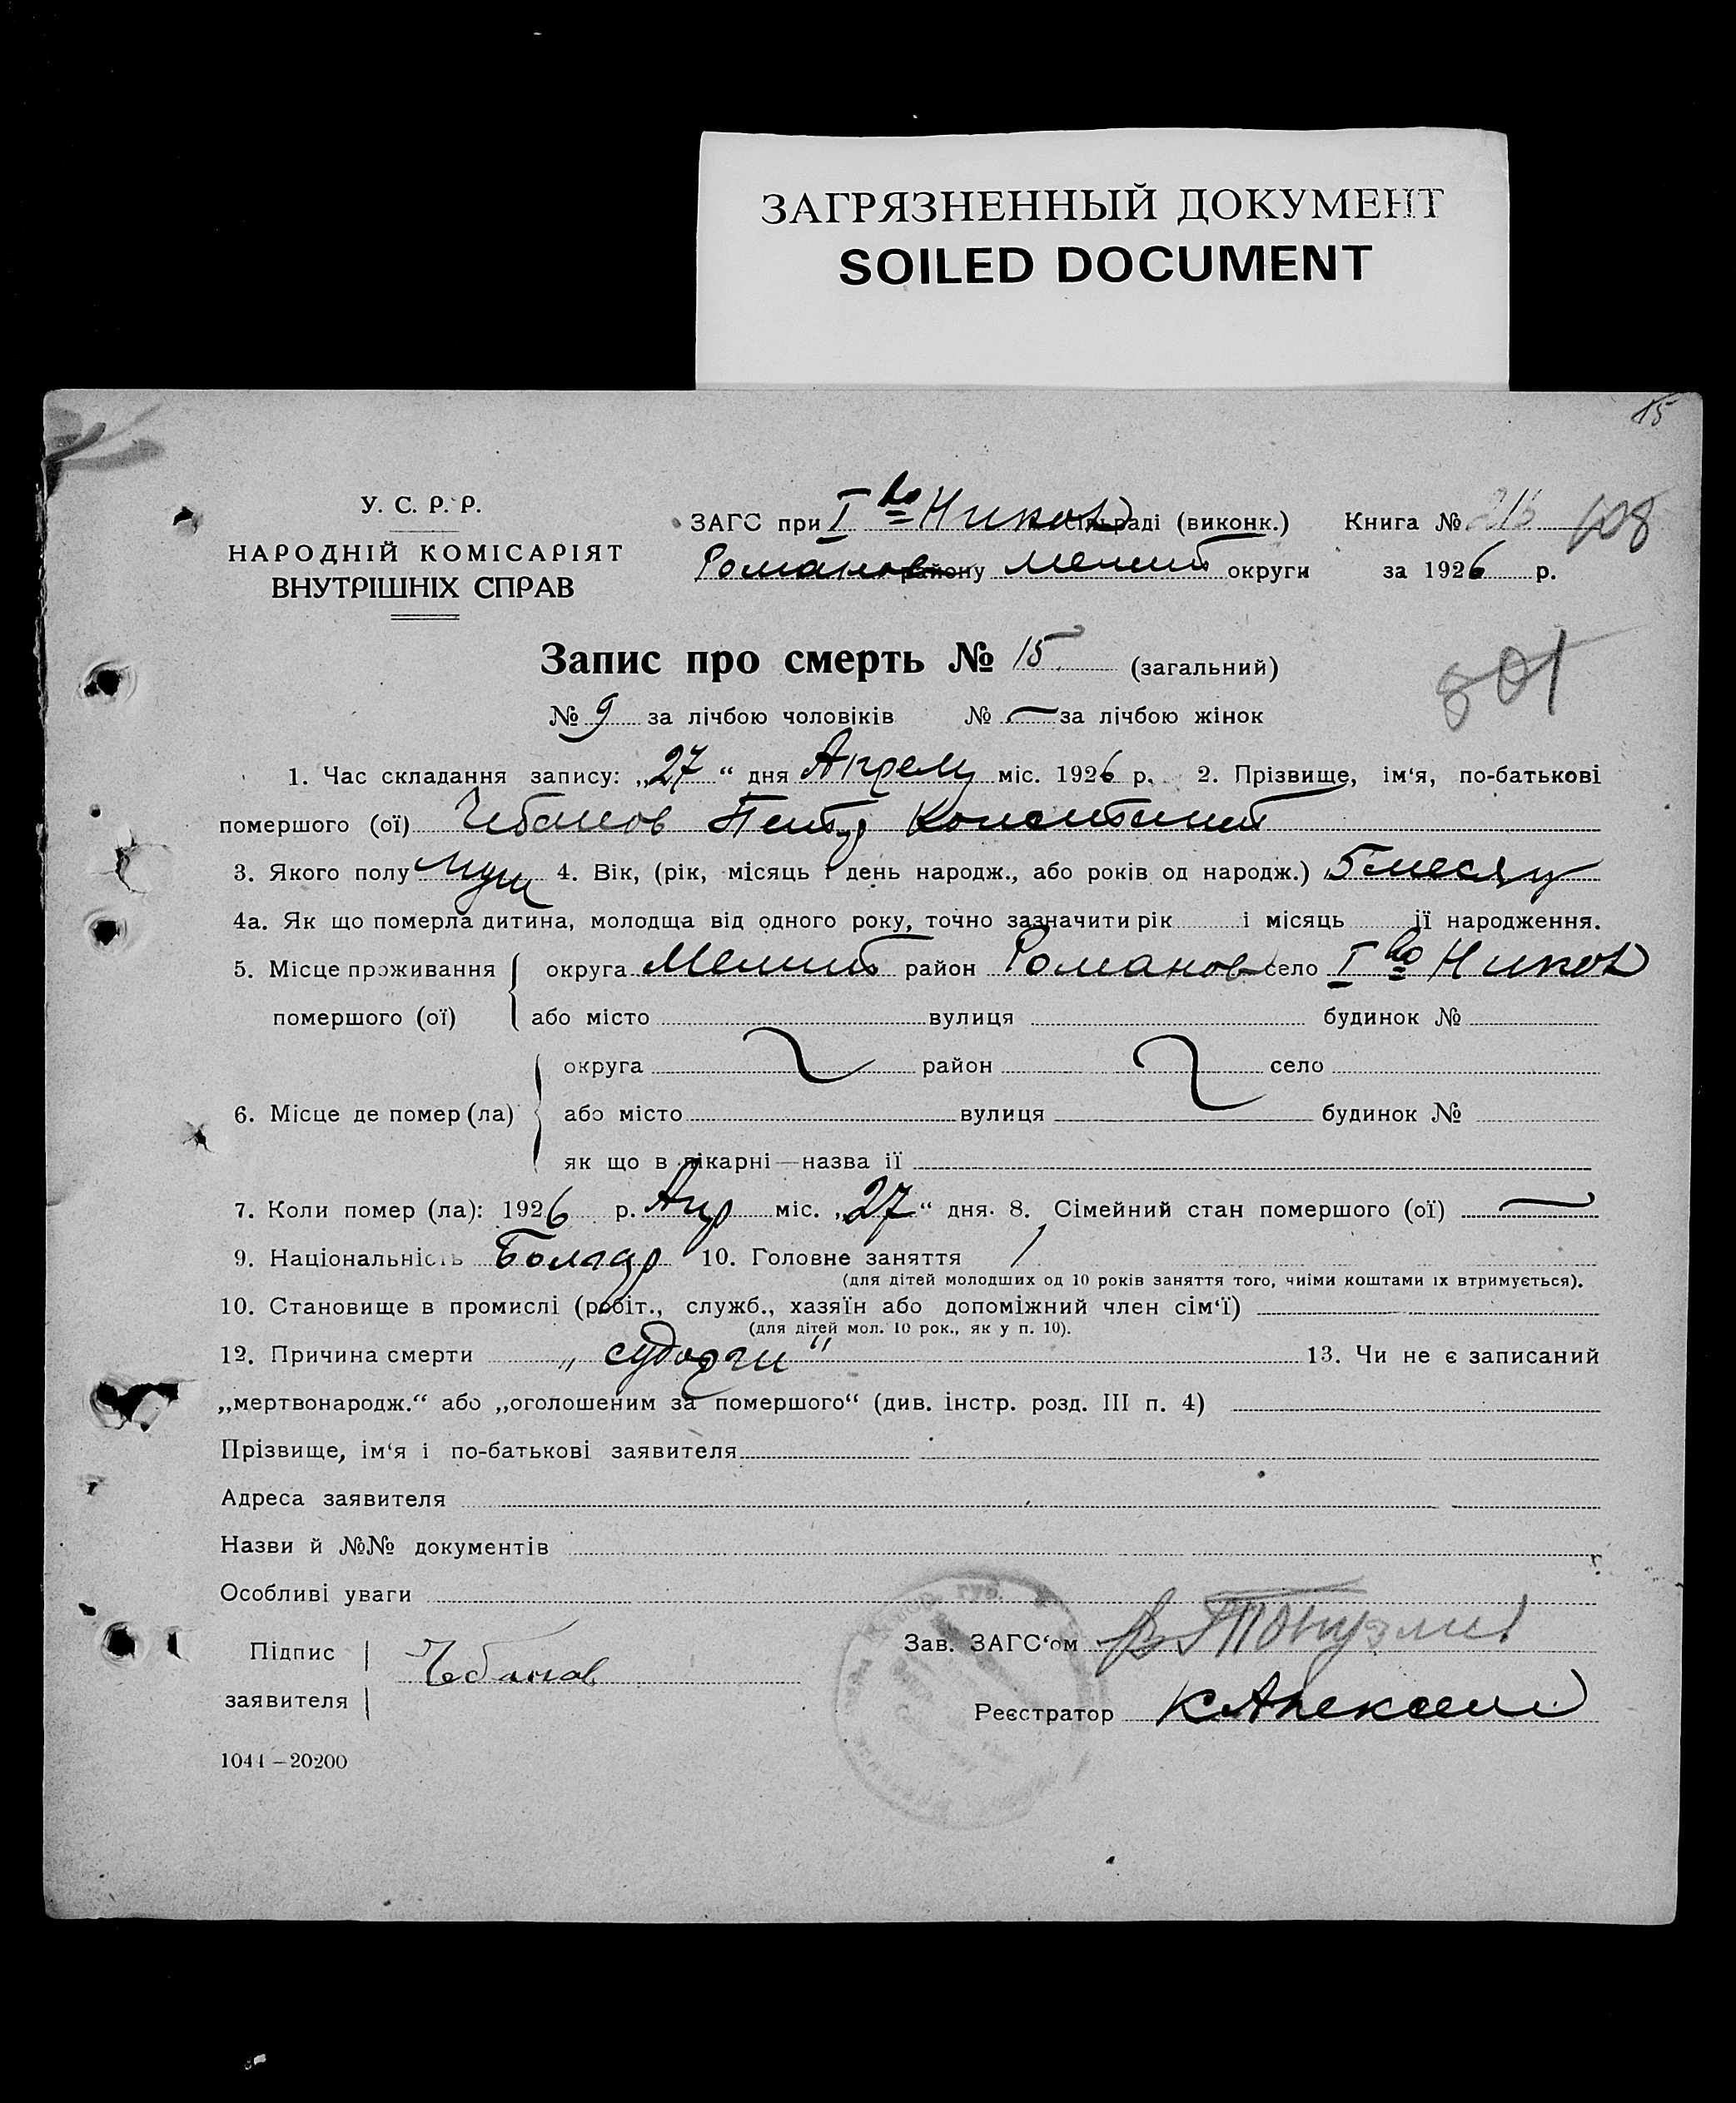 ЗАГРЯЗНЕННЫЙ ДОКУМЕНТ
SOILED DOCUMENT
15
У. С. Р. Р.
НАРОДНІЙ КОМІСАРІЯТ
ВНУТРІШНІХ СПРАВ
ЗАГС при І во Никол сільраді (виконк.) Книга № 108
Романов району Мелит округи за 1926 р.
Запис про смерть № 15 (загальний)
801
№ 9 за лічбою чоловіків № — за лічбою жінок
1. Час складання запису: „27“ дня Апрель міс. 1926 р. 2. Прізвище, ім‘я, по-батькові
помершого (ої) Чебанов Петр Константин
3. Якого полу муж 4. Вік, (рік, місяць і день народж., або років од народж.) 5 месяц
4а. Як що померла дитина, молодща від одного року, точно зазначити рік і місяць її народження.
5. Місце проживання помершого (ої) округа Мелит район Романов село І во Никол
або місто вулиця будинок №
округа район село
6. Місце де помер (ла) або місто вулиця будинок №
як що в лікарні — назва її
7. Коли помер (ла): 1926 р. Апр міс. „27“ дня. 8. Сімейний стан помершого (ої) —
9. Національність Болгар 10. Головне заняття
(для дітей молодших од 10 років заняття того, чиїми коштами їх втримується).
10. Становище в промислі (робіт., служб., хазяїн або допоміжний член сім‘ї)
(для дітей мол. 10 рок., як у п. 10).
12. Причина смерти „судорги“ 13. Чи не є записаний
„мертвонародж.“ або „оголошеним за помершого“ (див. інстр. розд. III п. 4)
Прізвище, ім‘я і по-батькові заявителя
Адреса заявителя
Назви й №№ документів
Особливі уваги
Підпис заявителя Чебанов
Зав. ЗАГС‘ом
Реєстратор К Алексеев
1044 — 20200